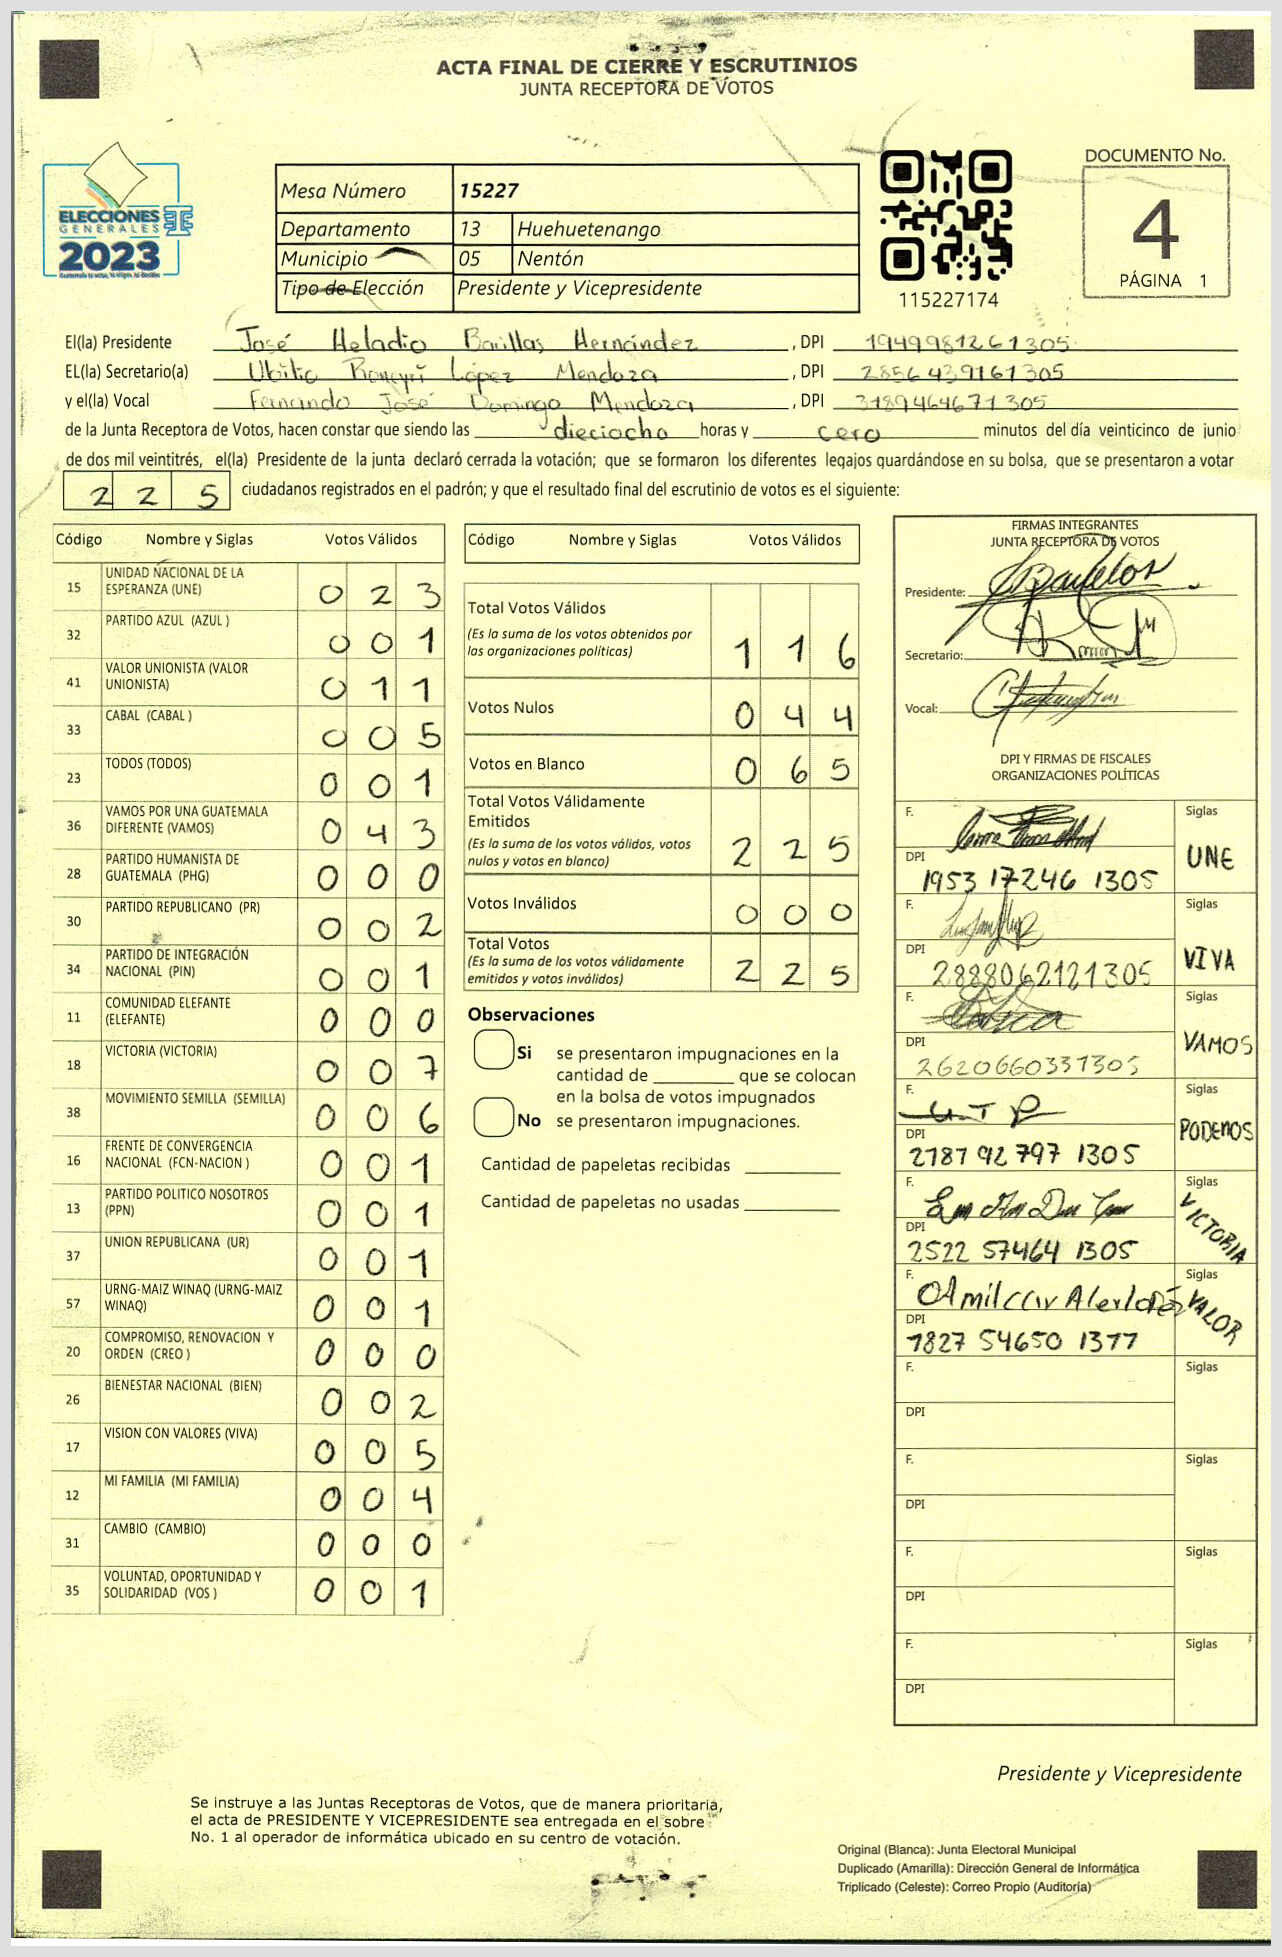 ACTA FINAL DE CIERRE Y ESCRUTINIOS
JUNTA RECEPTORA DE VOTOS
ELECCIONES
GENERALES
2023
Mesa Número 15227
Departamento 13 Huehuetenango
Municipio 05 Nentón
Tipo de Elección Presidente y Vicepresidente
115227174
DOCUMENTO No.
4
PÁGINA 1
El(la) Presidente José Heladio Barillas Hernández, DPI 1949981261305
EL(la) Secretario(a) López Mendoza, DPI 2856439161305
y el(la) Vocal Fernando José Domingo Mendoza, DPI 3189464671305
de la Junta Receptora de Votos, hacen constar que siendo las dieciocho horas y cero minutos del día veinticinco de junio
de dos mil veintitrés, el(la) Presidente de la junta declaró cerrada la votación; que se formaron los diferentes legajos guardándose en su bolsa, que se presentaron a votar
225 ciudadanos registrados en el padrón; y que el resultado final del escrutinio de votos es el siguiente:
Código Nombre y Siglas Votos Válidos
15 UNIDAD NACIONAL DE LA ESPERANZA (UNE) 023
32 PARTIDO AZUL (AZUL ) 001
41 VALOR UNIONISTA (VALOR UNIONISTA) 011
33 CABAL (CABAL ) 005
23 TODOS (TODOS) 001
36 VAMOS POR UNA GUATEMALA DIFERENTE (VAMOS) 043
28 PARTIDO HUMANISTA DE GUATEMALA (PHG) 000
30 PARTIDO REPUBLICANO (PR) 002
34 PARTIDO DE INTEGRACIÓN NACIONAL (PIN) 001
11 COMUNIDAD ELEFANTE (ELEFANTE) 000
18 VICTORIA (VICTORIA) 007
38 MOVIMIENTO SEMILLA (SEMILLA) 006
16 FRENTE DE CONVERGENCIA NACIONAL (FCN-NACION ) 001
13 PARTIDO POLITICO NOSOTROS (PPN) 001
37 UNION REPUBLICANA (UR) 001
57 URNG-MAIZ WINAQ (URNG-MAIZ WINAQ) 001
20 COMPROMISO, RENOVACION Y ORDEN (CREO ) 000
26 BIENESTAR NACIONAL (BIEN) 002
17 VISION CON VALORES (VIVA) 005
12 MI FAMILIA (MI FAMILIA) 004
31 CAMBIO (CAMBIO) 000
35 VOLUNTAD, OPORTUNIDAD Y SOLIDARIDAD (VOS ) 001
Código Nombre y Siglas Votos Válidos
Total Votos Válidos 116
(Es la suma de los votos obtenidos por
las organizaciones políticas)
Votos Nulos 044
Votos en Blanco 065
Total Votos Válidamente
Emitidos 225
(Es la suma de los votos válidos, votos
nulos y votos en blanco)
Votos Inválidos 000
Total Votos 225
(Es la suma de los votos válidamente
emitidos y votos inválidos)
Observaciones
Si se presentaron impugnaciones en la
cantidad de ________ que se colocan
en la bolsa de votos impugnados
No se presentaron impugnaciones.
Cantidad de papeletas recibidas ________
Cantidad de papeletas no usadas ________
FIRMAS INTEGRANTES
JUNTA RECEPTORA DE VOTOS
Presidente:
Secretario:
Vocal:
DPI Y FIRMAS DE FISCALES
ORGANIZACIONES POLÍTICAS
F. Siglas
DPI 1953 17246 1305 UNE
F. Siglas
DPI 2888062121305 VIVA
F. Siglas
DPI 2620660331305 VAMOS
F. Siglas
DPI 2187 92 797 1305 PODEMOS
F. Siglas
DPI 2522 57464 1305 VICTORIA
F. Siglas
DPI 1827 54650 1377 VALOR
F. Siglas
DPI
F. Siglas
DPI
F. Siglas
DPI
F. Siglas
DPI
Presidente y Vicepresidente
Se instruye a las Juntas Receptoras de Votos, que de manera prioritaria,
el acta de PRESIDENTE Y VICEPRESIDENTE sea entregada en el sobre
No. 1 al operador de informática ubicado en su centro de votación.
Original (Blanca): Junta Electoral Municipal
Duplicado (Amarilla): Dirección General de Informática
Triplicado (Celeste): Correo Propio (Auditoría)